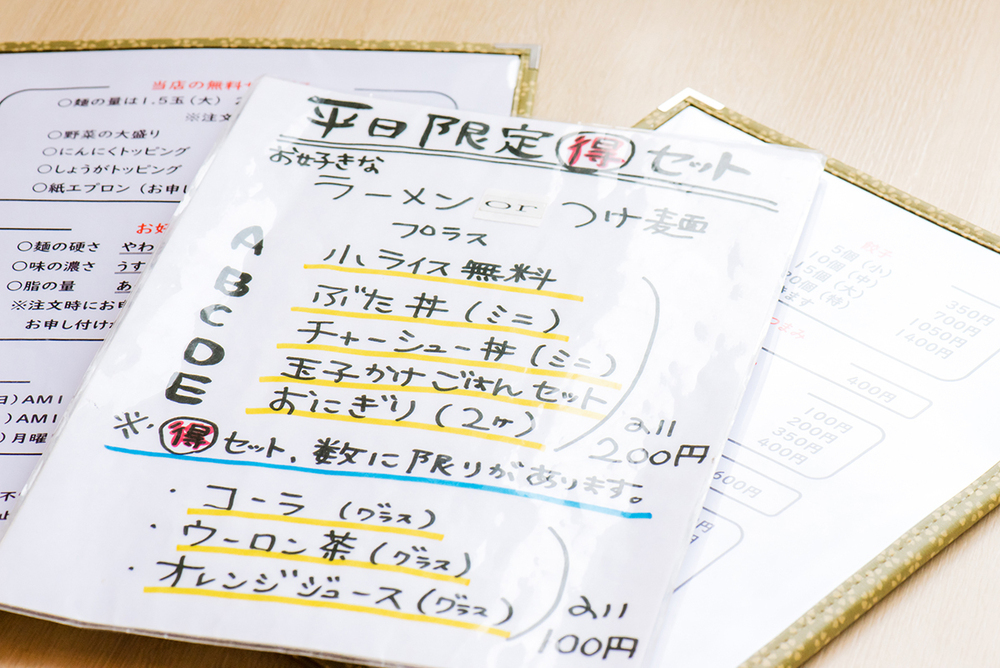 平日限定 得 セット
お好きな
ラーメン or つけ麺
プラス
A 小ライス無料
B ぶた丼(ミニ)
C チャーシュー丼(ミニ)
D 玉子かけごはんセット
E おにぎり(2ヶ)
all
200円
※ 得 セット、数に限りがあります。
・コーラ(グラス)
・ウーロン茶(グラス)
・オレンジジュース(グラス)
all
100円
当店の無料
○麺の量は1.5玉(大)
※注文
○野菜の大盛り
○にんにくトッピング
○しょうがトッピング
○紙エプロン(お申し
お好
○麺の硬さ やわ
○味の濃さ うす
○脂の量 あ
※注文時にお申
お申し付けか
)AMI
)AMI
)月曜
餃子
5個(小) 350円
10個(中) 700円
15個(大) 1050円
20個(特) 1400円
きます
つまみ
400円
100円
200円
350円
400円
600円
円
円